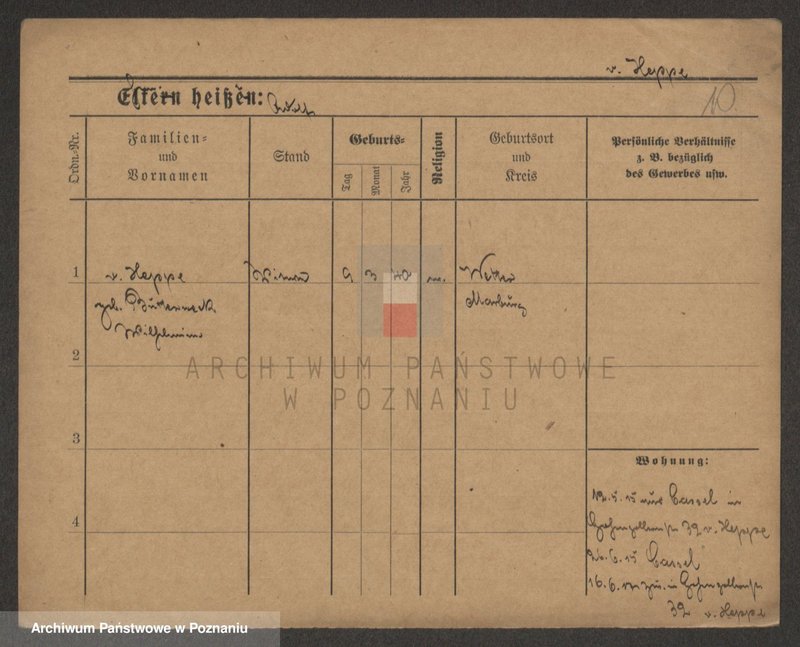 v. Heppe
10
Eltern heißen:
Ordn.-Nr.
Familien=
und
Vornamen
Stand
Geburts=
Tag
Monat
Jahr
Religion
Geburtsort
und
Kreis
Persönliche Verhältnisse
z. B. bezüglich
des Gewerbes usw.
1 v. Heppe 9 3 40 Wetter
geb.
Marburg
Wilhelmine
2
ARCHIWUM PAŃSTWOWE
W POZNANIU
3
Wohnung:
12.5.15 aus Cassel in
39 v. Heppe
4
26.6.15 Cassel
16.6. in
39 v. Heppe
Archiwum Państwowe w Poznaniu